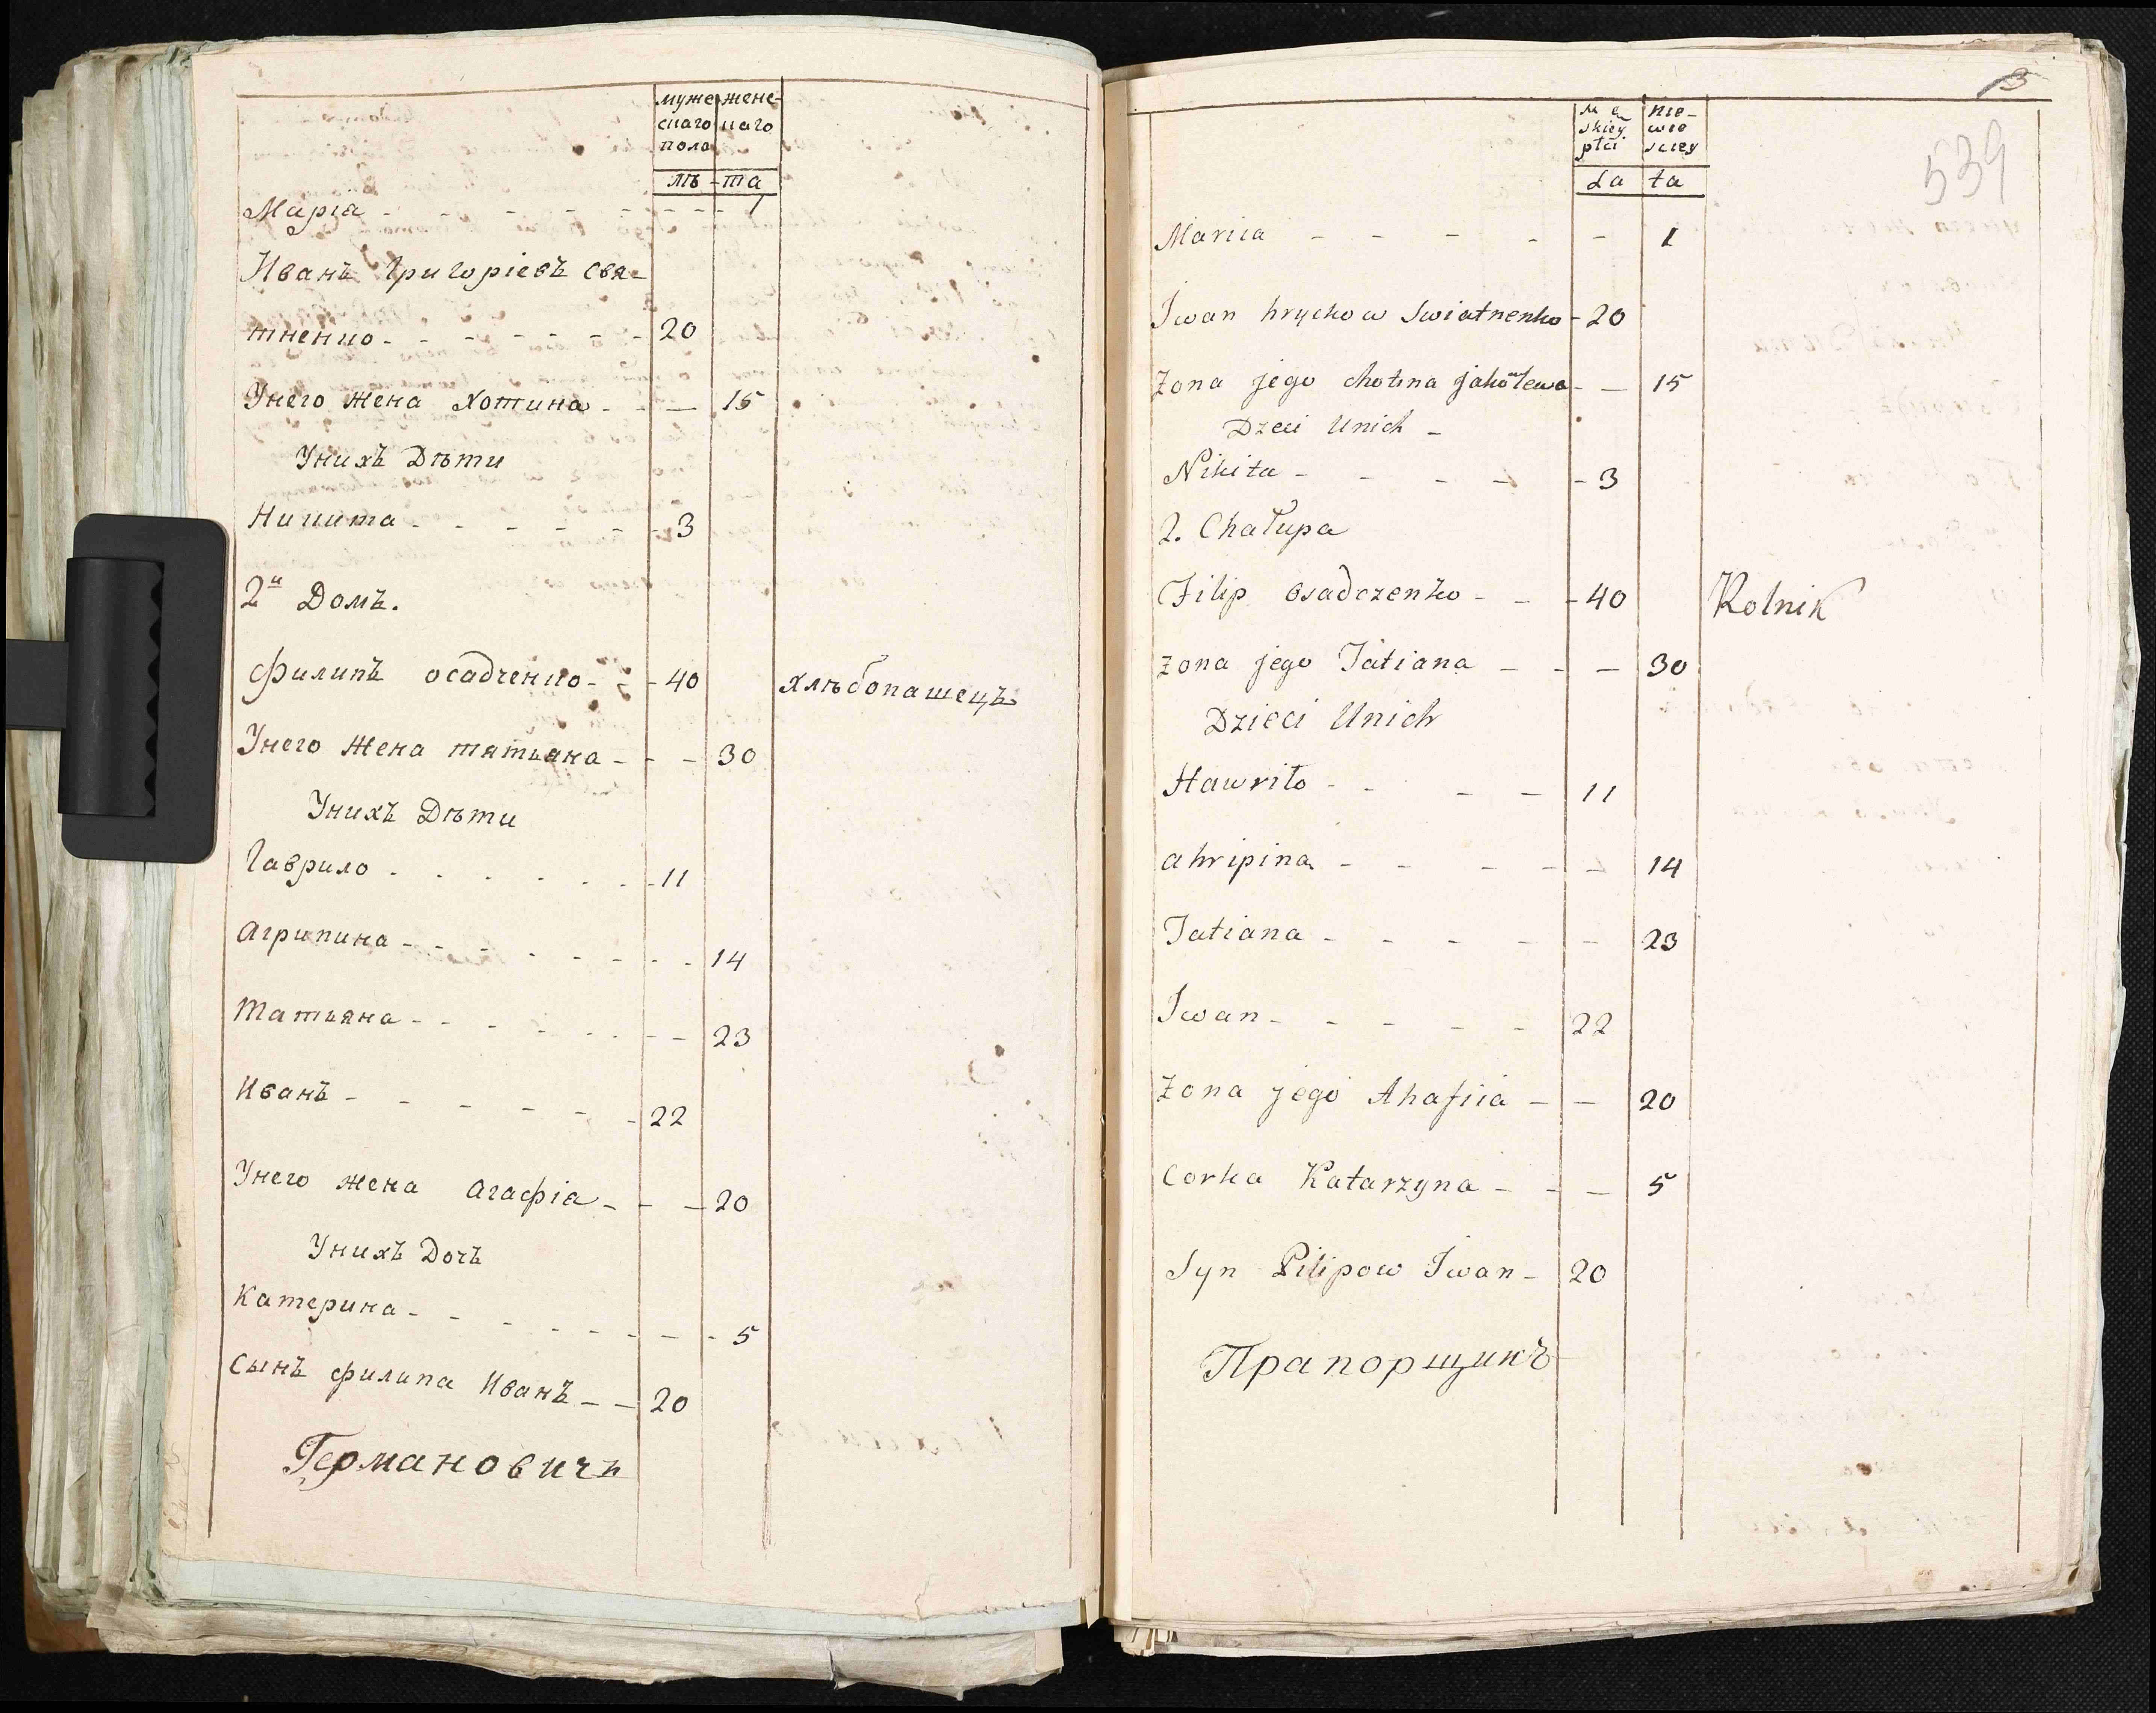 муже жене-
скаго каго
пола
лѣ - та
Маріа - - - - - - - - 1
Иванъ Григоріевъ Свя-
тненко - - - - - - 20
Унего жена Хотина - - - 15
Унихъ Дѣти
Никита - - - - - - 3
2й Домъ.
Филипъ осадченко - - - 40 хлѣбопашецъ
Унего жена татьяна - - - 30
Унихъ Дѣти
Гаврило - - - - - - 11
Агрипина - - - - - - - - 14
Татьяна - - - - - - - - 23
Иванъ - - - - - - 22
Унего жена Агафіа - - - 20
Унихъ Дочъ
Катерина - - - - - - - - 5
Сынъ филипа Иванъ - - 20
Германовичъ
3
539
mę nie-
skiey wie
płci sciey
La ta
Mariia - - - - - 1
Iwan hryckow Swiatnenko - 20
Zona jego chotina - - 15
Dzeci Unich -
Nikita - - - - - 3
2. Chałupa
Filip osadczenko - - - 40 Rolnik
Zona jego Tatiana - - - 30
Dzieci Unich
Hawriło - - - - 11
ahripina - - - - - 14
Tatiana - - - - - 23
Iwan - - - - - 22
Zona jego Ahafiia - - 20
Corka Katarzyna - - - 5
Syn Pilipow Iwan - 20
Прапорщикъ